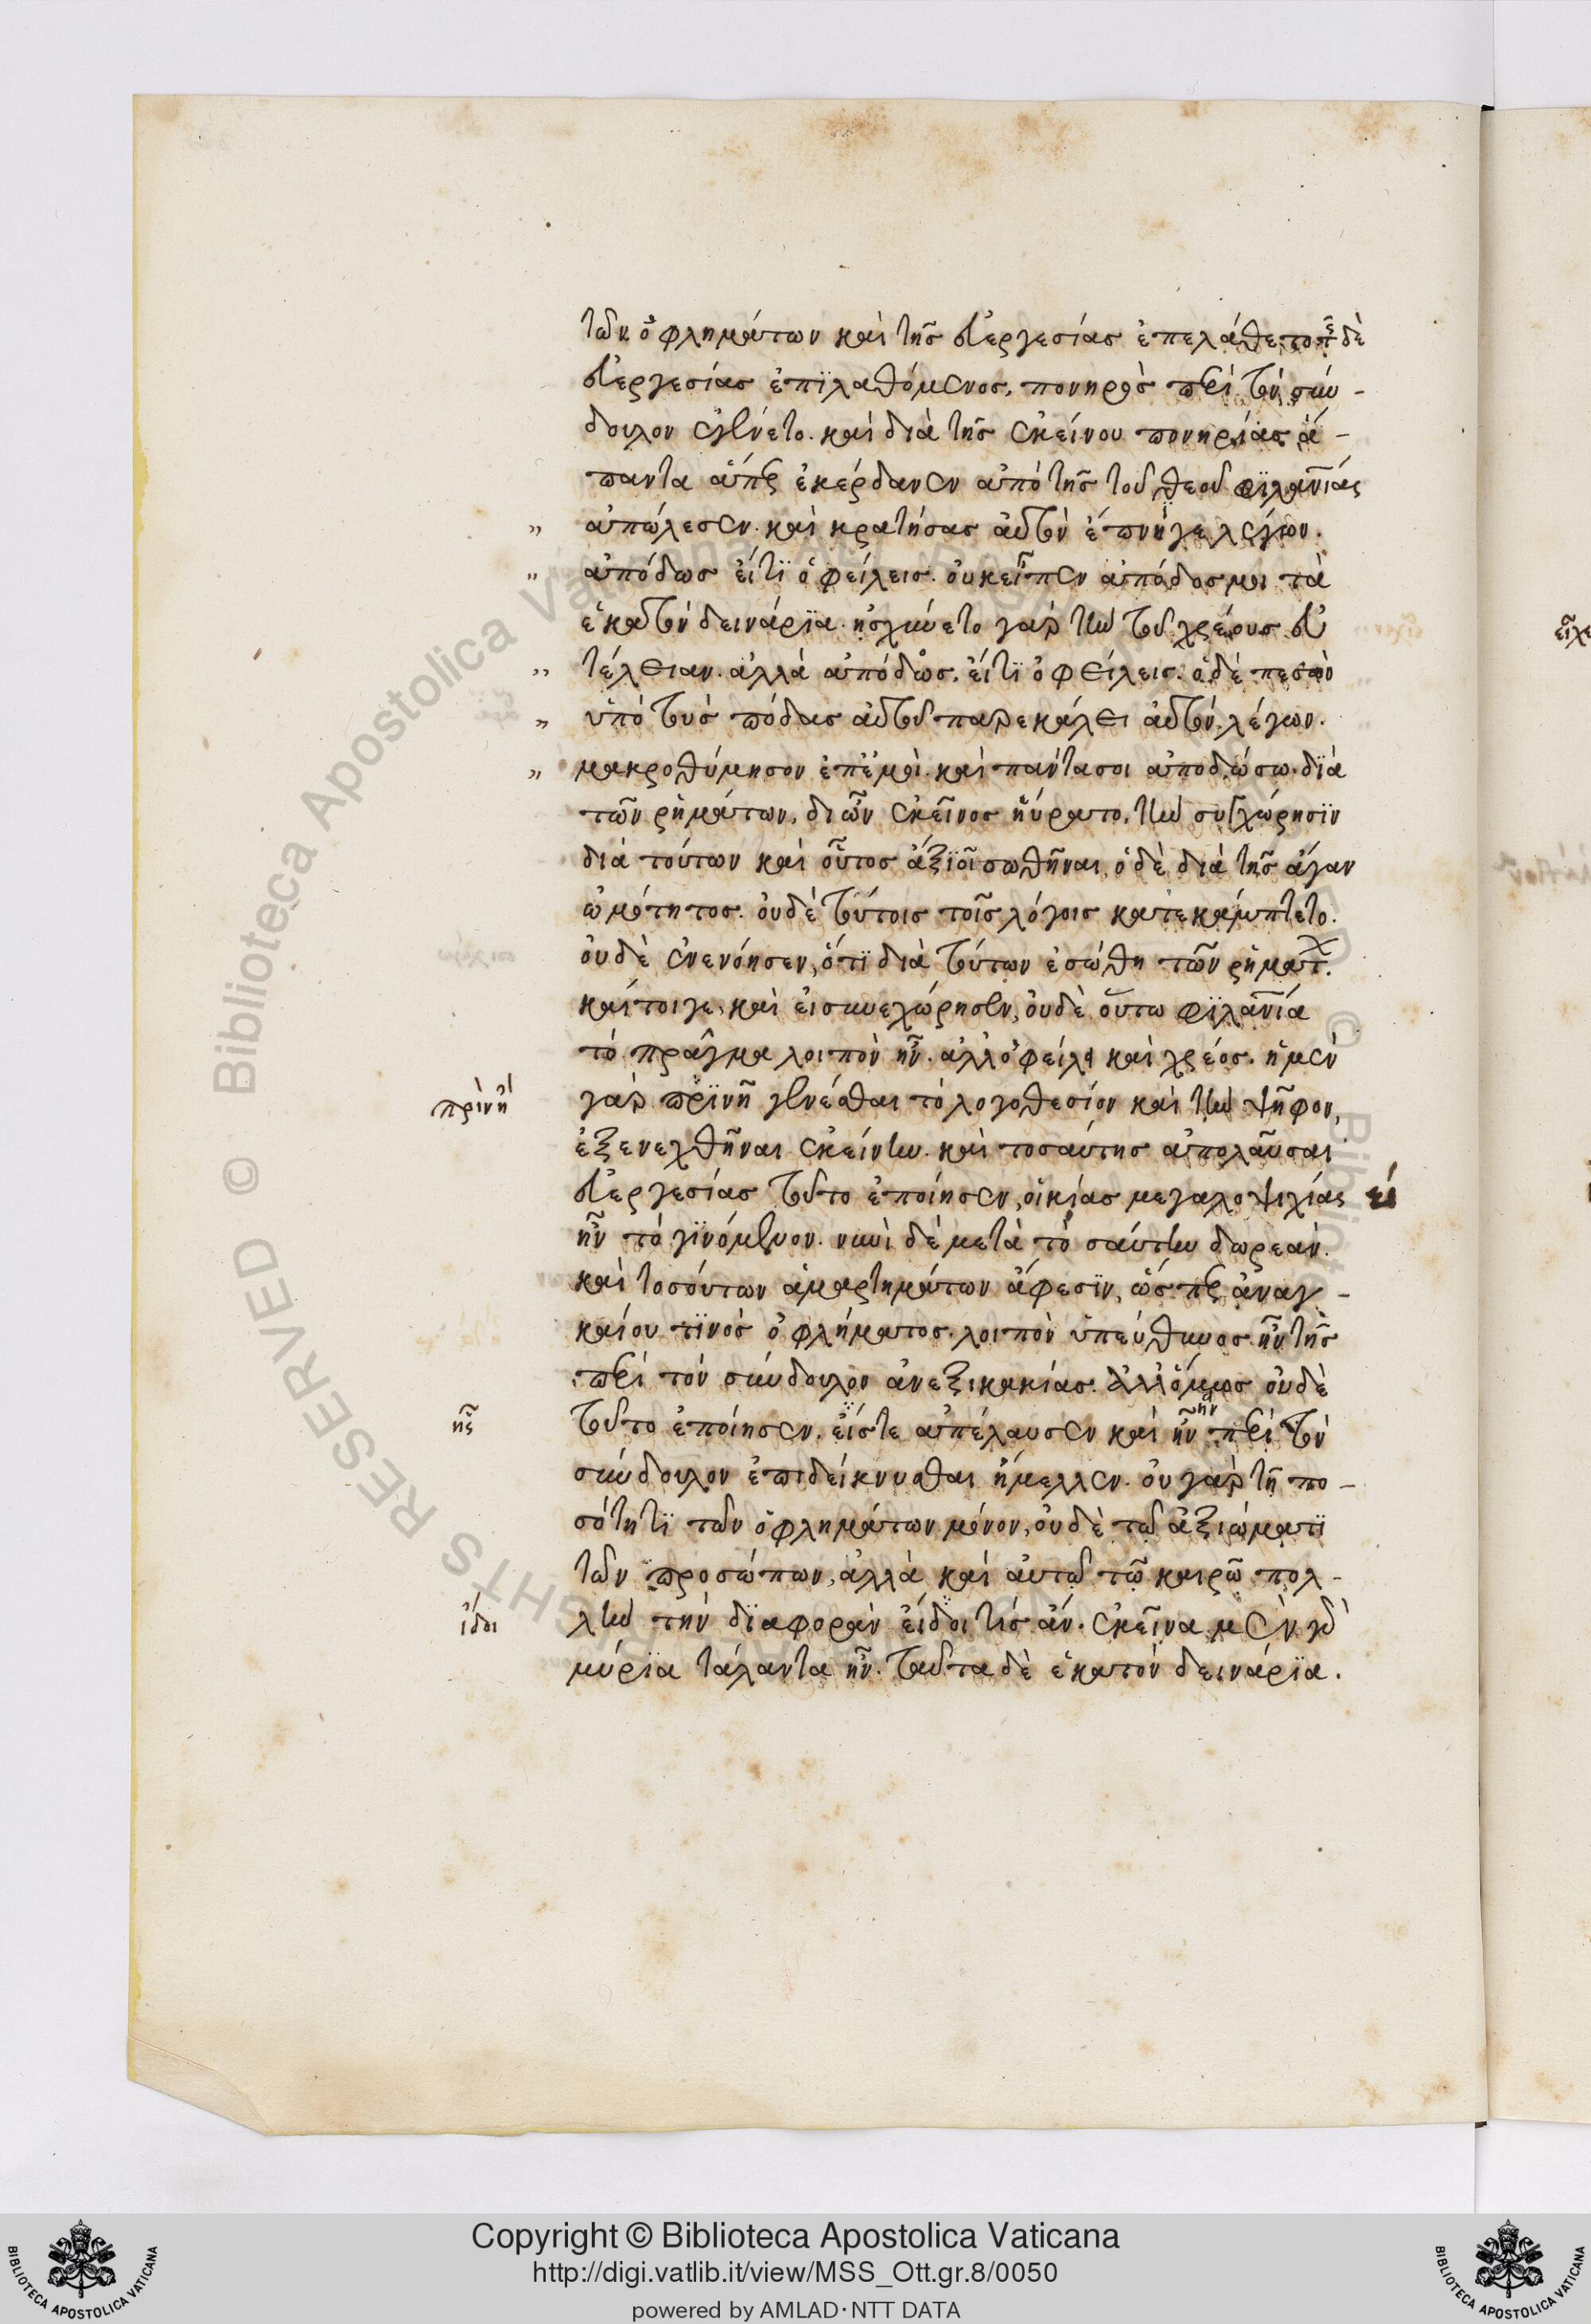 τῶν ὀφλημάτων καὶ τῆς εὐεργεσίας ἐπελάθετο τῆς δὲ
εὐεργεσίας ἐπϊλαθόμενος, πονηρὸς περὶ τὸν σύν-
δουλον ἐγένετο. καὶ διὰ τῆς ἐκείνου πονηρίας ἁ-
παντα ἅπερ ἐκέρδανεν ἀπὸ τῆς τοῦ θεοῦ φϊλανίας
" ἀπώλεσεν. καὶ κρατήσας αὐτὸν ἔπνηγε λέγων.
" ἀπόδως εἴ τϊ ὀφείλεις. οὐκ εἶπεν ἀπόδος μοι τὰ
ἑκατὸν δεινάρϊα. ἠσχύνετο γὰρ τὴν τοῦ χρέους εὐ
" τέλειαν. ἀλλὰ ἀπόδως, εἴ τϊ ὀφείλεις. ὁ δὲ πεσὼν
" ὑπὸ τοὺς πόδας αὐτοῦ παρεκάλει αὐτὸν λέγων.
" μακροθύμησον ἐπ' ἐμοὶ. καὶ πάντα σοι ἀποδώσω. δϊὰ
τῶν ῥημάτων, δι ὧν ἐκεῖνος ηὕρατο, τὴν συγχώρησϊν
διὰ τούτων καὶ οὗτος ἀξϊοῖ σωθῆναι, ὁ δὲ διὰ τῆς ἄγαν
ὠμότητος. οὐδὲ τούτοις τοῖς λόγοις κατεκάμπτετο.
οὐδὲ ἐνενόησεν, ὅτϊ διὰ τούτων ἐσώθη τῶν ῥημάτ.
καίτοιγε, καὶ εἰ συνεχώρησεν, οὐδὲ οὕτω φϊλανία
τὸ πρᾶγμα λοιπὸν ἦν. ἀλλ' ὀφείλὴ καὶ χρέος. ἡ μὲν
πρὶν ἢ
γὰρ πρϊνῆ γενέσθαι τὸ λογοθεσίον καὶ τὴν ψῆφον,
ἐξενεχθῆναι ἐκείνην. καὶ τοσαύτης ἀπολαῦσαι
εὐεργεσίας τοῦτο ἐποίησεν, οἰκίας μεγαλοψιχίας εἰ
ἦν τὸ γϊνόμενον. νυνὶ δὲ μετὰ τὸ σαύτην δωρεὰν.
καὶ τοσούτων ἁμαρτημάτων ἄφεσϊν, ὥσπερ ἀναγ-
καίου τϊνὸς ὀφλήματος. λοιπὸν ὑπεύθυνος ἦν τῆς
περὶ τὸν σύνδουλον ἀνεξικακίας. ἀλλ' ὅμως οὐδὲ
ἧς
τοῦτο ἐποίησεν. εἴστε ἀπέλαυσεν καὶ ἣν ἦν περὶ τὸν
σύνδουλον ἐπιδείκνυσθαι ἤμελλεν. οὐ γὰρ τῆ πο-
σότητϊ τῶν ὀφλημάτων μόνον, οὐδὲ τῶ ἀξιώματϊ
τῶν προσώπων, ἀλλὰ καὶ αὐτῶ τῶ καιρῶ πολ-
ἴδοι
λὴν τὴν δϊαφορὰν εἴδοι τὶς ἄν. ἐκεῖνα μὲν γὰρ
μύρϊα τάλαντα ἦν. ταῦτα δὲ ἑκατὸν δεινάρϊα.
εἶχε
Copyright © Biblioteca Apostolica Vaticana
http://digi.vatlib.it/view/MSS_Ott.gr.8/0050
powered by AMLAD·NTT DATA